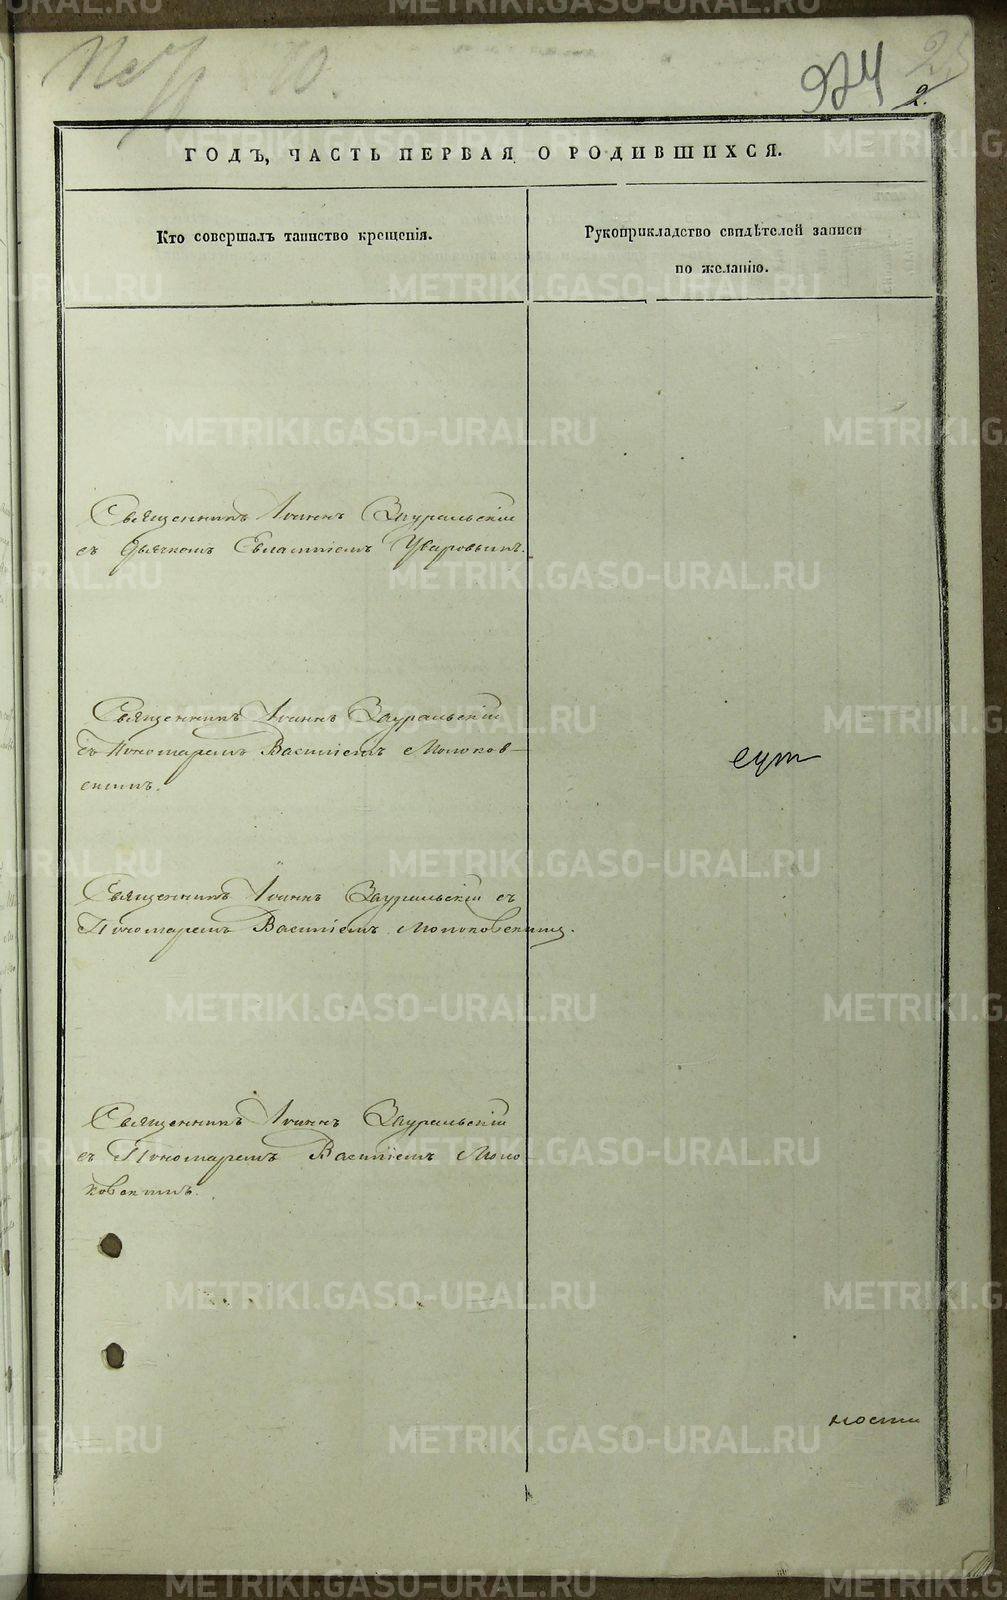 924
2.
ГОДЪ, ЧАСТЬ ПЕРВАЯ О РОДИВШИХСЯ.
Кто совершалъ таинство крещенія.
Рукоприкладство свидѣтелей записи
по желанію.
Священникъ Іоаннъ Зауральскій
съ Дьячкомъ Евлампіемъ Уваровымъ.
Священникъ Іоаннъ Зауральскій
съ Пономаремъ Василіемъ Молоков-
скимъ.
Священникъ Іоаннъ Зауральскій съ
Пономаремъ Василіемъ Молоковскимъ.
Священникъ Іоаннъ Зауральскій
съ Пономаремъ Василіемъ Моло-
ковскимъ.
ности
METRIKI.GASO-URAL.RU